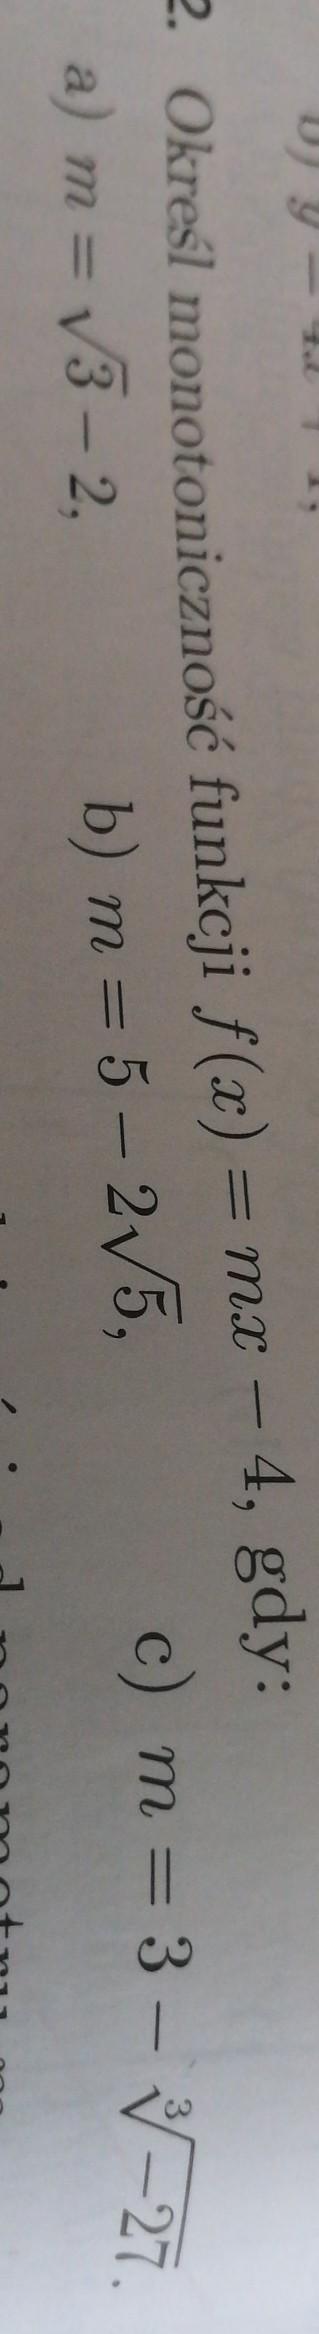 2. Określ monotoniczność funkcji f(x) = mx − 4, gdy:
a) m = √3 − 2, b) m = 5 − 2√5, c) m = 3 − ∛−27.